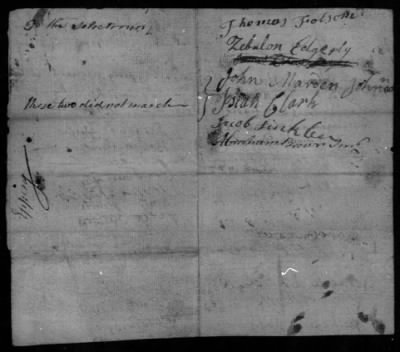 To the Selectmen
Thomas Folsom
Zebulon Edgerly
John Marden John
those two did not march } Josiah Clark
Jacob
Abraham Brown Jnr
Epping